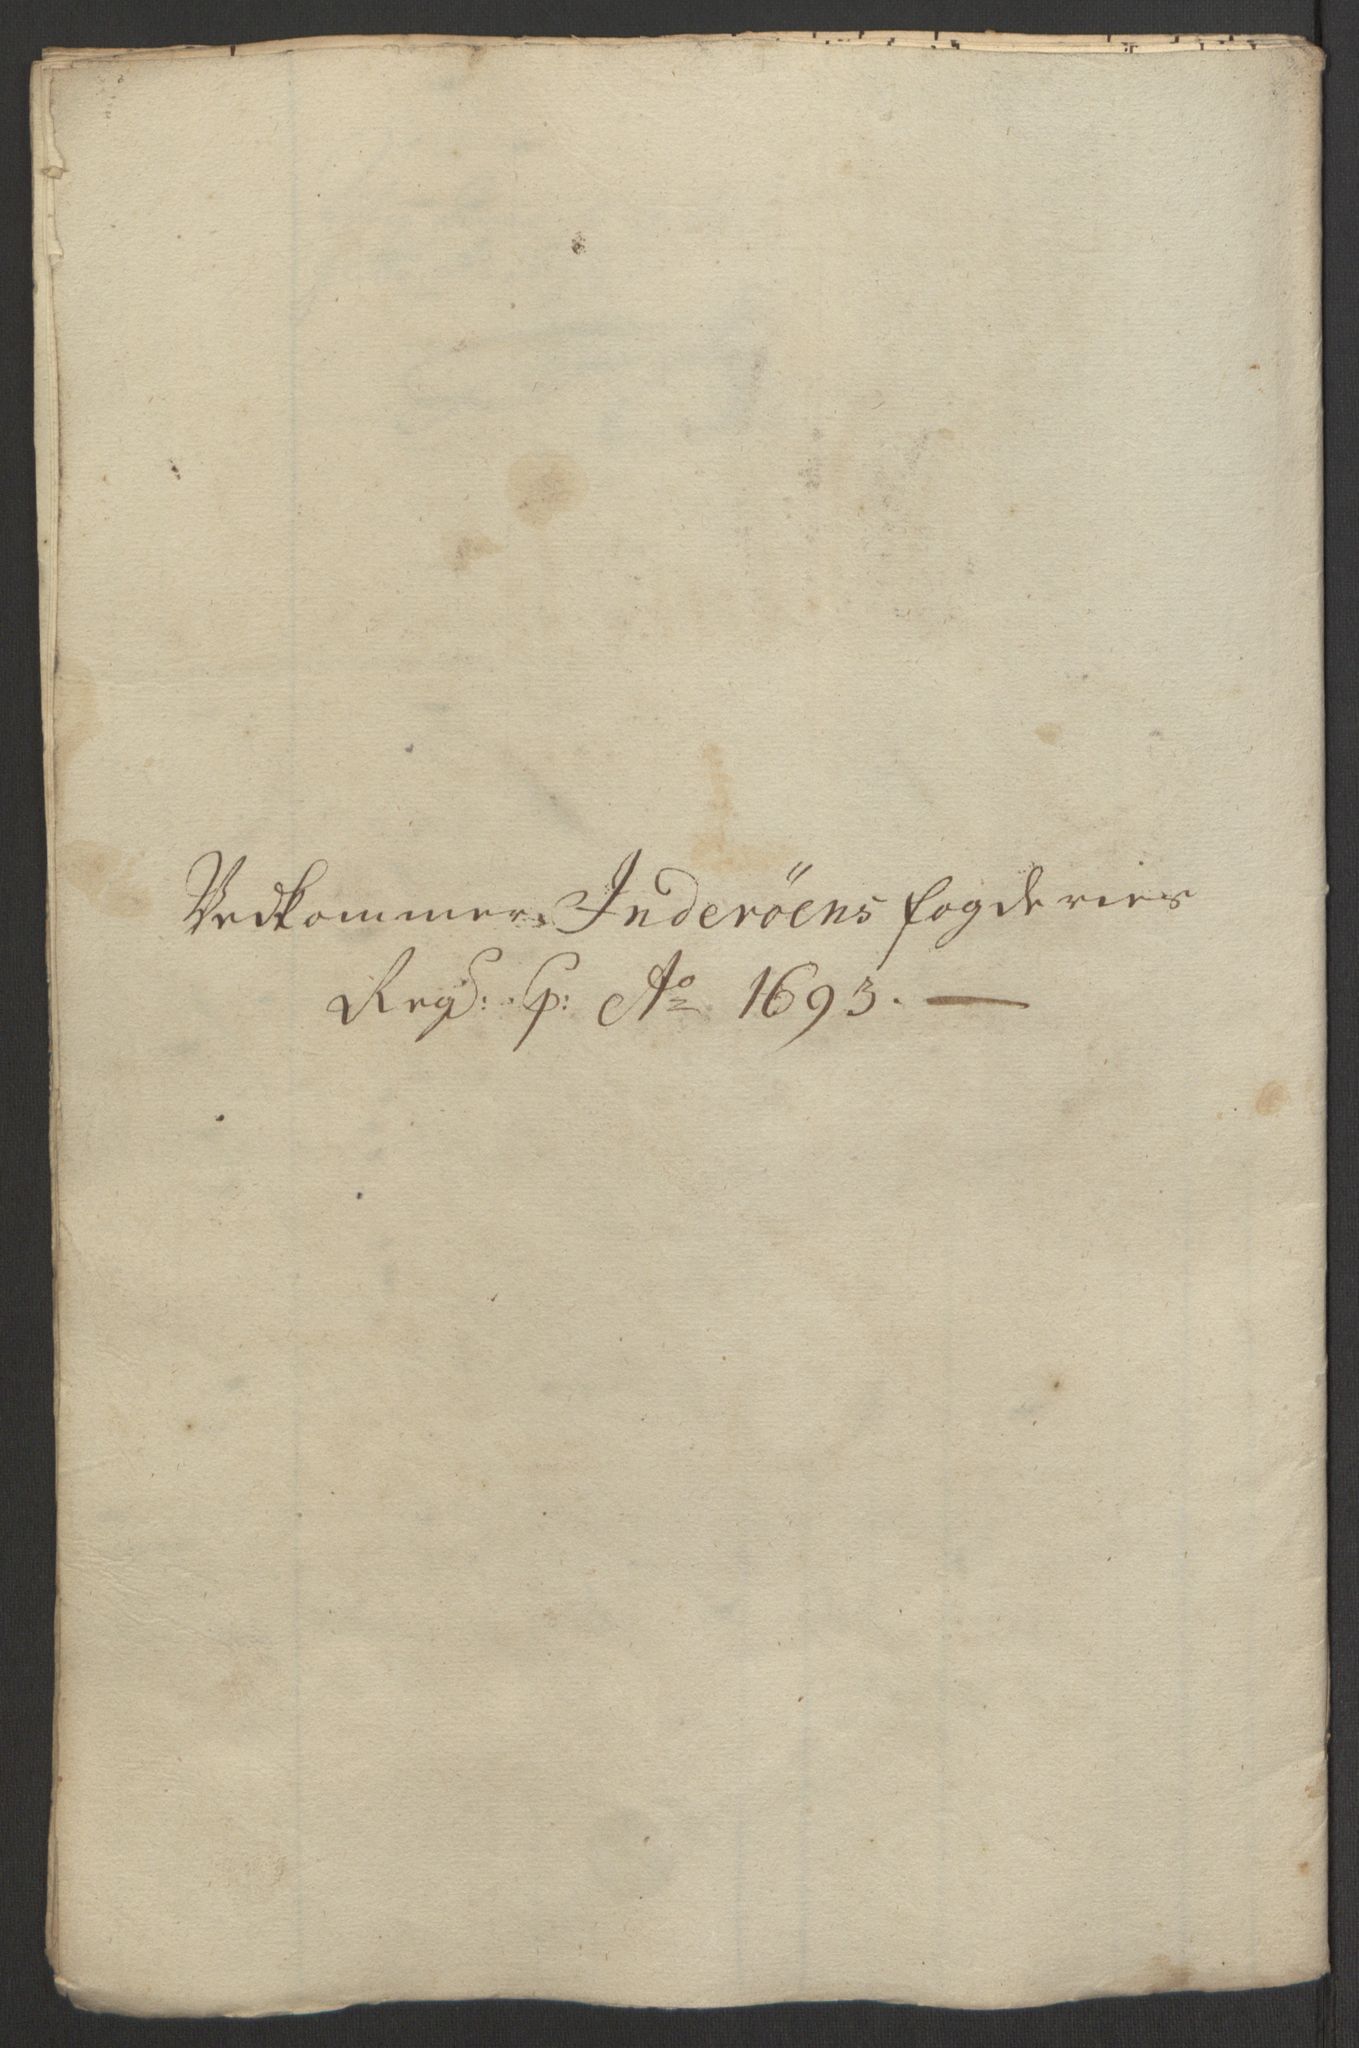 Vedkommer Inderöens fogderies
Regs: p: Ao 1693.